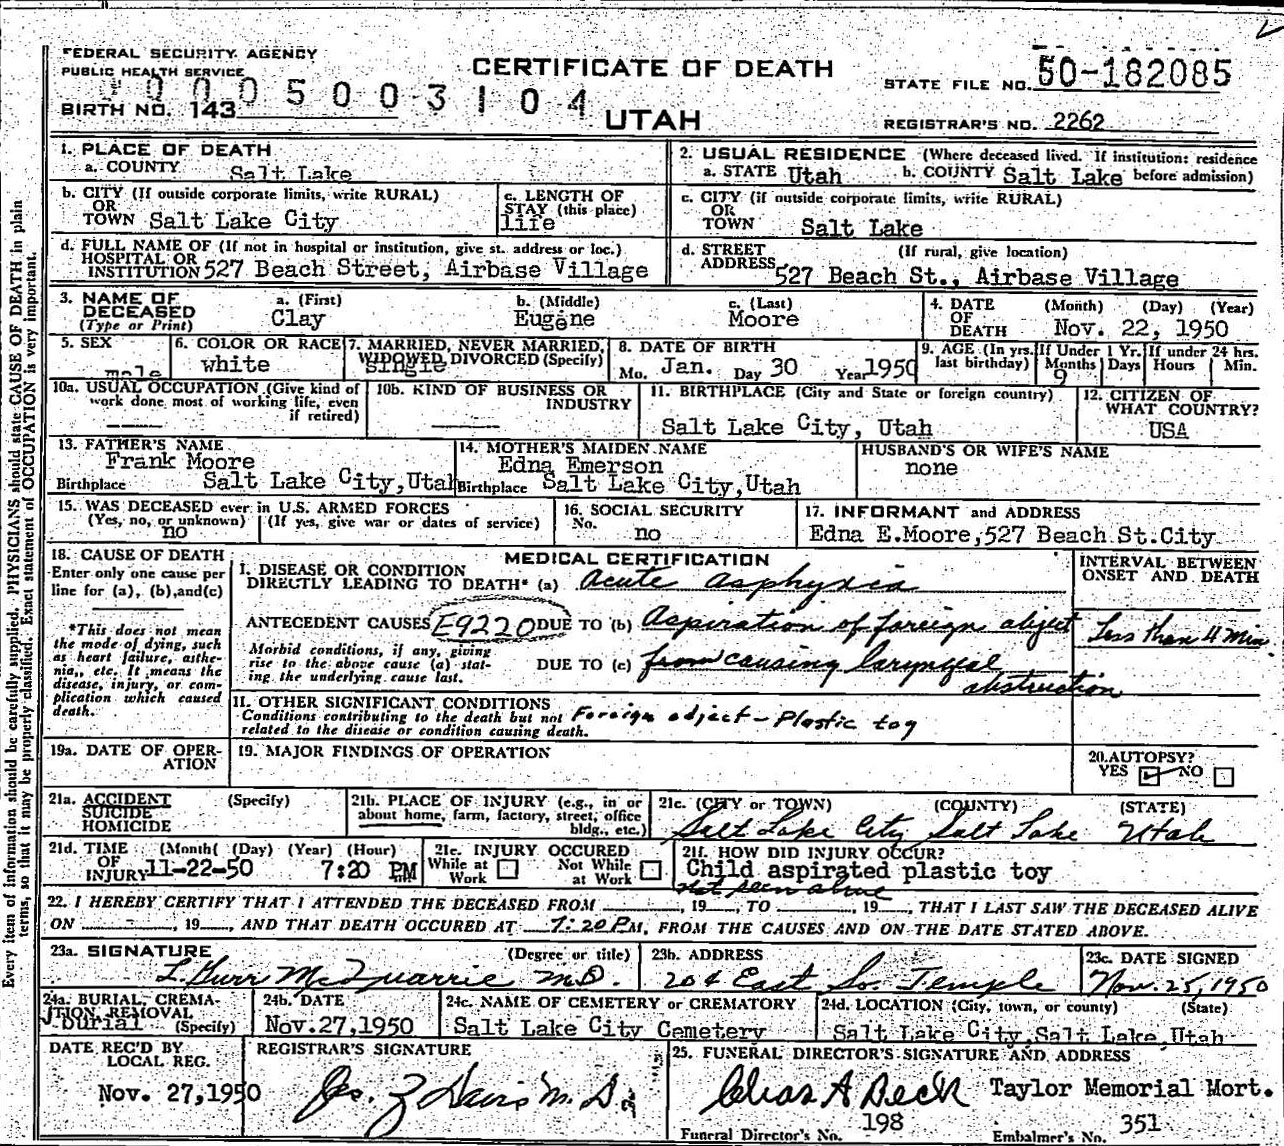 FEDERAL SECURITY AGENCY
PUBLIC HEALTH SERVICE
CERTIFICATE OF DEATH
STATE FILE NO. 50-182085
1 0 0 0 5 0 0 3 1 0 4
BIRTH NO. 143
UTAH
REGISTRAR'S NO. 2262
1. PLACE OF DEATH
a. COUNTY Salt Lake
2. USUAL RESIDENCE (Where deceased lived. If institution: residence before admission)
a. STATE Utah b. COUNTY Salt Lake
b. CITY (If outside corporate limits, write RURAL)
OR
TOWN Salt Lake City
c. LENGTH OF
STAY (this place)
life
c. CITY (if outside corporate limits, write RURAL)
OR
TOWN Salt Lake
d. FULL NAME OF (If not in hospital or institution, give st. address or loc.)
HOSPITAL OR
INSTITUTION 527 Beach Street, Airbase Village
d. STREET (If rural, give location)
ADDRESS 527 Beach St., Airbase Village
3. NAME OF
DECEASED
(Type or Print)
a. (First)
Clay
b. (Middle)
Eugene
c. (Last)
Moore
4. DATE
OF
DEATH
(Month) (Day) (Year)
Nov. 22, 1950
5. SEX
male
6. COLOR OR RACE
white
7. MARRIED, NEVER MARRIED,
WIDOWED DIVORCED (Specify)
single
8. DATE OF BIRTH
Mo. Jan. Day 30 Year 1950
9. AGE (In yrs.
last birthday)
If Under 1 Yr.
Months Days
9
If under 24 hrs.
Hours Min.
10a. USUAL OCCUPATION (Give kind of
work done most of working life, even
if retired)
10b. KIND OF BUSINESS OR
INDUSTRY
11. BIRTHPLACE (City and State or foreign country)
Salt Lake City, Utah
12. CITIZEN OF
WHAT COUNTRY?
USA
13. FATHER'S NAME
Frank Moore
Birthplace Salt Lake City, Utah
14. MOTHER'S MAIDEN NAME
Edna Emerson
Birthplace Salt Lake City, Utah
HUSBAND'S OR WIFE'S NAME
none
15. WAS DECEASED ever in U.S. ARMED FORCES
(Yes, no, or unknown) (If yes, give war or dates of service)
no
16. SOCIAL SECURITY
No.
no
17. INFORMANT and ADDRESS
Edna E.Moore,527 Beach St.City
18. CAUSE OF DEATH
Enter only one cause per
line for (a), (b), and (c)
*This does not mean
the mode of dying, such
as heart failure, asthe-
nia, etc. It means the
disease, injury, or com-
plication which caused
death.
MEDICAL CERTIFICATION
I. DISEASE OR CONDITION
DIRECTLY LEADING TO DEATH* (a) Acute asphyxia
ANTECEDENT CAUSES E9220 DUE TO (b) Aspiration of foreign object
Morbid conditions, if any, giving
rise to the above cause (a) stat-
ing the underlying cause last.
DUE TO (c) from causing laryngeal
obstruction
INTERVAL BETWEEN
ONSET AND DEATH
Less than 4 Min
II. OTHER SIGNIFICANT CONDITIONS
Conditions contributing to the death but not
related to the disease or condition causing death.
Foreign object - Plastic toy
19a. DATE OF OPER-
ATION
19. MAJOR FINDINGS OF OPERATION
20. AUTOPSY?
YES NO
21a. ACCIDENT (Specify)
SUICIDE
HOMICIDE
21b. PLACE OF INJURY (e.g., in or
about home, farm, factory, street, office
bldg., etc.)
21c. (CITY or TOWN) (COUNTY) (STATE)
Salt Lake City Salt Lake Utah
21d. TIME (Month) (Day) (Year) (Hour)
OF
INJURY 11-22-50 7:20 PM
21e. INJURY OCCURED
While at
Work
Not While
at Work
21f. HOW DID INJURY OCCUR?
Child aspirated plastic toy
not seen alive
22. I HEREBY CERTIFY THAT I ATTENDED THE DECEASED FROM , 19 , TO , 19 , THAT I LAST SAW THE DECEASED ALIVE
ON , 19 , AND THAT DEATH OCCURED AT 7:20 PM, FROM THE CAUSES AND ON THE DATE STATED ABOVE.
23a. SIGNATURE (Degree or title)
McQuarrie M.D.
23b. ADDRESS
204 East So. Temple
23c. DATE SIGNED
Nov. 25, 1950
24a. BURIAL, CREMA-
TION, REMOVAL
burial (Specify)
24b. DATE
Nov.27,1950
24c. NAME OF CEMETERY or CREMATORY
Salt Lake City Cemetery
24d. LOCATION (City, town, or county) (State)
Salt Lake City,Salt Lake,Utah
DATE REC'D BY
LOCAL REG.
Nov. 27,1950
REGISTRAR'S SIGNATURE
M.D.
25. FUNERAL DIRECTOR'S SIGNATURE AND ADDRESS
Chas A Beck Taylor Memorial Mort.
198 351
Funeral Director's No. Embalmer's No.
Every item of information should be carefully supplied. PHYSICIANS should state CAUSE OF DEATH in plain
terms, so that it may be properly classified. Exact statement of OCCUPATION is very important.